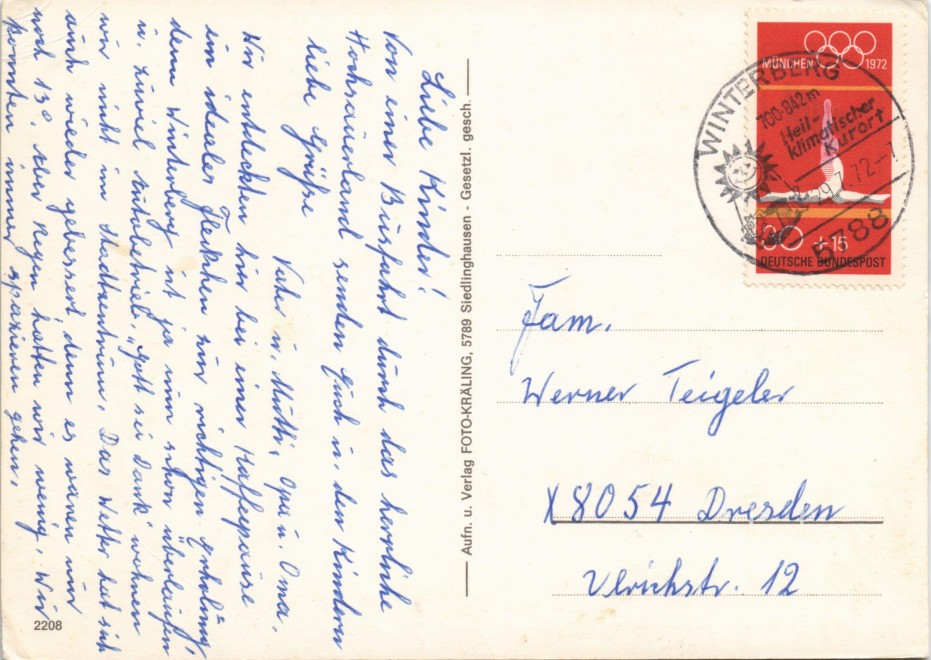 Liebe Kinder!
Von einer Busfahrt durch das herrliche
Hochsauerland senden Euch u. den Kindern
liebe Grüße
Vater u. Mutti, Opa u. Oma.
Wir entdeckten hier bei einer Kaffeepause
ein ideales Fleckchen zur richtigen Erholung,
denn Winterberg ist ja nun schon überlaufen
u. zuviel Autobetrieb. "Gott sei Dank" wohnen
wir nicht im Stadtzentrum. Das Wetter hat sich
auch wieder gebessert, denn es waren nur
noch 13°. Aber Regen hatten wir wenig. Wir
konnten immer spazieren gehen.
2208
Aufn. u. Verlag FOTO-KRÄLING, 5789 Siedlinghausen - Gesetzl. gesch.
MÜNCHEN 1972
+15
DEUTSCHE BUNDESPOST
WINTERBERG
700-842m
Heil-
klimatischer
Kurort
5788
Fam.
Werner Teigeler
X8054 Dresden
Ulrichstr. 12